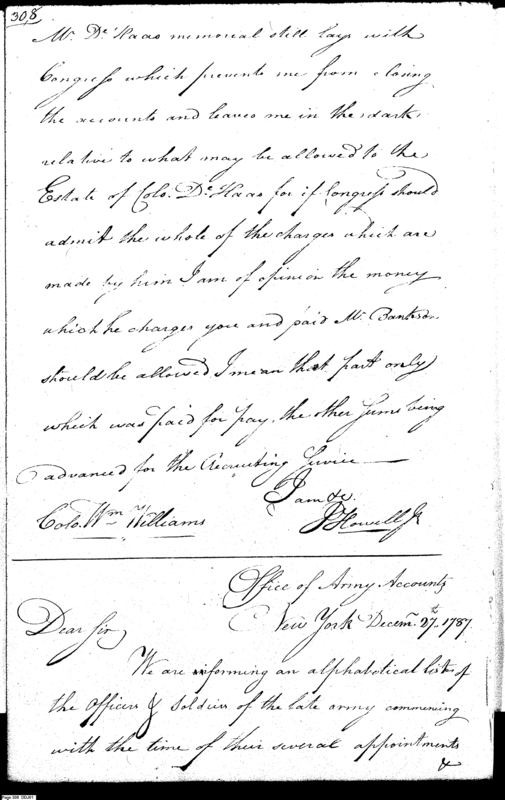 308
Mr. De Haas memorial still lays with
Congress which prevents me from closing
the accounts and leaves me in the dark
relative to what may be allowed to the
Estate of Colo. De Haas for if Congress should
admit the whole of the charges which are
made by him I am of opinion the money
which he charges you and paid Mr. Bankson
should be allowed I mean that part only
which was paid for pay, the other sums being
advanced for the Recruiting Service
I am &c.
Colo. Wm Williams
J Howell Jr
Office of Army Accounts
New York Decem. 27th 1787
Dear Sir
We are forming an alphabetical list of
the Officers & Soldiers of the late army commencing
with the time of their several appointments
&
Page 308